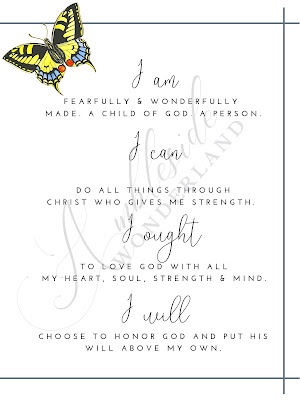 I am
FEARFULLY & WONDERFULLY
MADE. A CHILD OF GOD. A PERSON.
I can
DO ALL THINGS THROUGH
CHRIST WHO GIVES ME STRENGTH.
I ought
TO LOVE GOD WITH ALL
MY HEART, SOUL, STRENGTH & MIND.
I will
CHOOSE TO HONOR GOD AND PUT HIS
WILL ABOVE MY OWN.
Ambleside
WONDERLAND